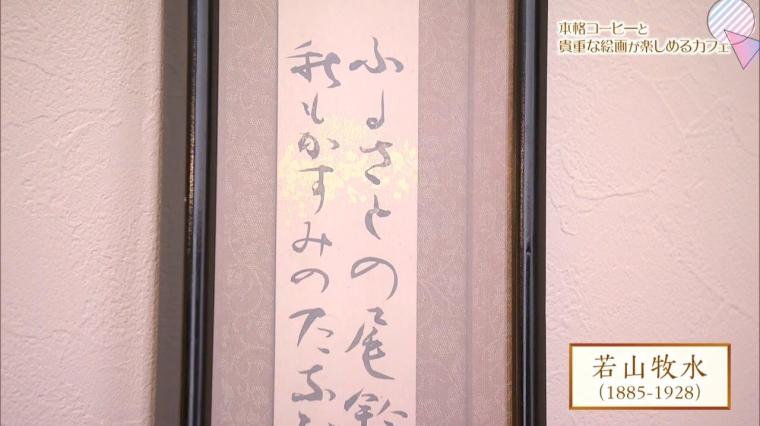 本格コーヒーと
貴重な絵画が楽しめるカフェ
ふるさとの尾鈴
秋もかすみのたな
若山牧水
(1885-1928)